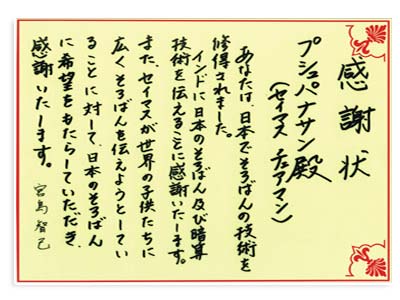 感謝状
プシュパナサン殿
(セイマス チェアマン)
あなたは、日本でそろばんの技術を
修得されました。
インドに日本のそろばん及び暗算
技術を伝えることに感謝いたします。
また、セイマスが世界の子供たちに
広くそろばんを伝えようとしてい
ることに対して、日本のそろばん
に希望をもたらしていただき、
感謝いたします。
宮島智己